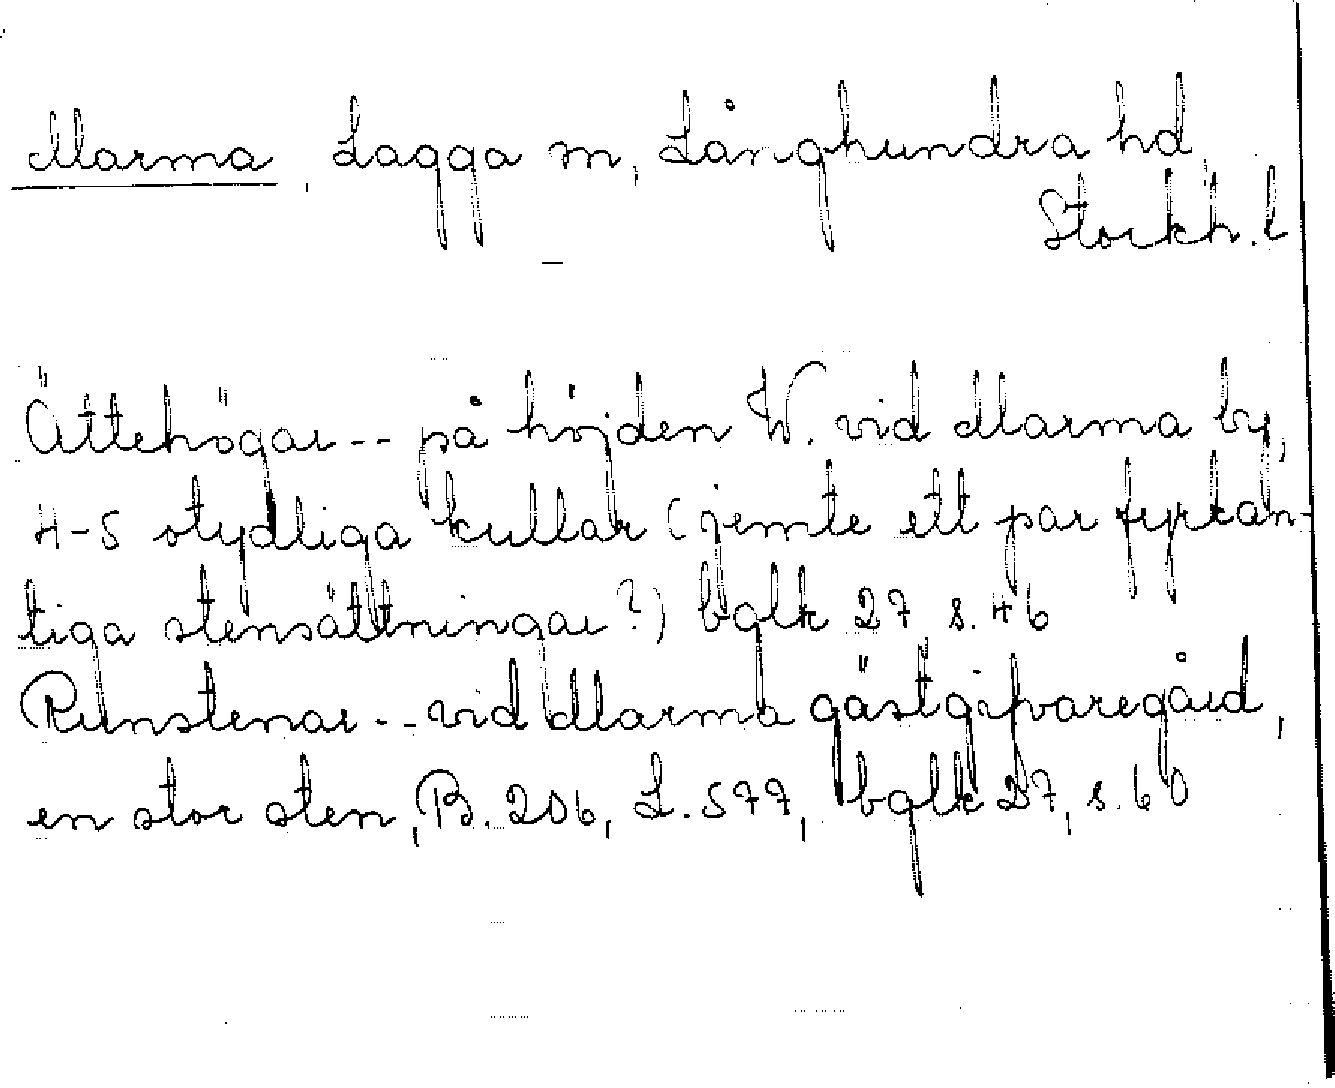 Marma, Lagga sn, Långhundra hd,
Stockh. l
Ättehögar -- på höjden W. vid Marma by,
4-5 otydliga kullar (jemte ett par fyrkan-
tiga stensättningar?) bglk 27 s. 46
Runstenar -- vid Marma gästgifvaregård,
en stor sten, B. 206, L. 577, bglk 27, s. 60